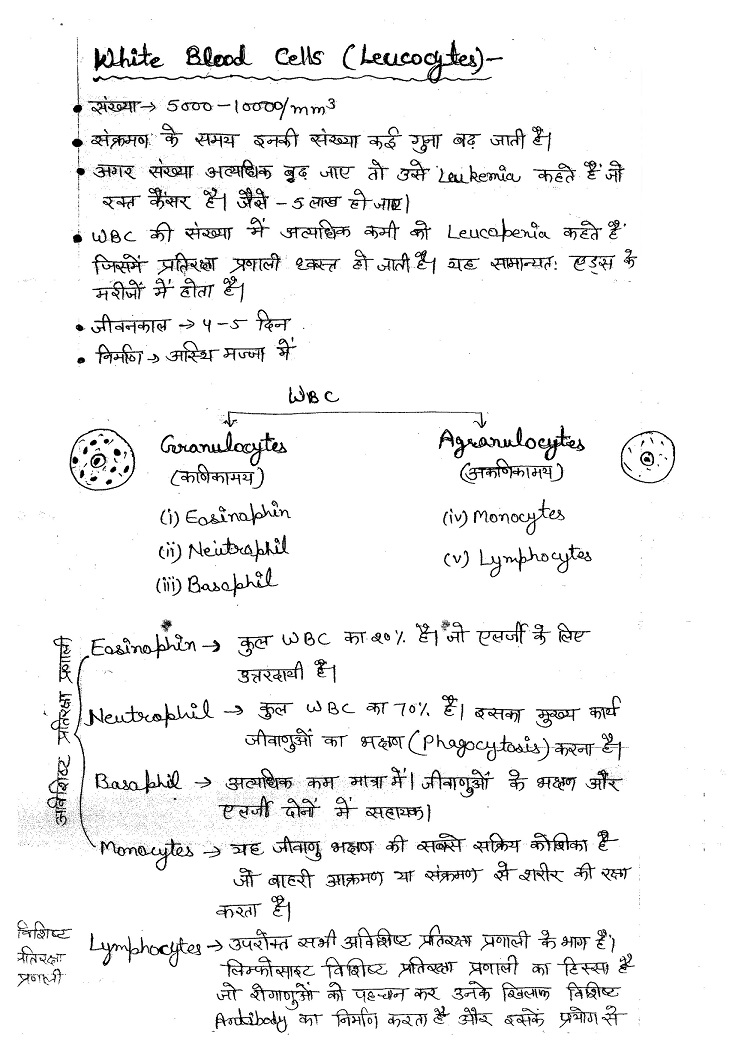 White Blood Cells (Leucocytes)-
• संख्या → 5000-10000/mm³
• संक्रमण के समय इनकी संख्या कई गुना बढ़ जाती है।
• अगर संख्या अत्यधिक बढ़ जाए तो उसे Leukemia कहते हैं जो
रक्त कैंसर है। जैसे - 5 लाख हो जाए।
• WBC की संख्या में अत्यधिक कमी को Leucopenia कहते हैं
जिसमें प्रतिरक्षा प्रणाली ध्वस्त हो जाती है। यह सामान्यतः एड्स के
मरीजों में होता है।
• जीवनकाल → 4-5 दिन
• निर्माण → अस्थि मज्जा में
WBC
Granulocytes
(कणिकामय)
(i) Eosinophin
(ii) Neutrophil
(iii) Basophil
Agranulocytes
(अकणिकामय)
(iv) Monocytes
(v) Lymphocytes
अविशिष्ट प्रतिरक्षा प्रणाली
Eosinophin → कुल WBC का 20% है। जो एलर्जी के लिए
उत्तरदायी है।
Neutrophil → कुल WBC का 70% है। इसका मुख्य कार्य
जीवाणुओं का भक्षण (Phagocytosis) करना है।
Basophil → अत्यधिक कम मात्रा में। जीवाणुओं के भक्षण और
एलर्जी दोनों में सहायक।
Monocytes → यह जीवाणु भक्षण की सबसे सक्रिय कोशिका है
जो बाहरी आक्रमण या संक्रमण से शरीर की रक्षा
करता है।
विशिष्ट
प्रतिरक्षा
प्रणाली
Lymphocytes → उपरोक्त सभी अविशिष्ट प्रतिरक्षा प्रणाली के भाग हैं।
लिम्फोसाइट विशिष्ट प्रतिरक्षा प्रणाली का हिस्सा है
जो रोगाणुओं को पहचान कर उनके खिलाफ विशिष्ट
Antibody का निर्माण करता है और इसके प्रयोग से